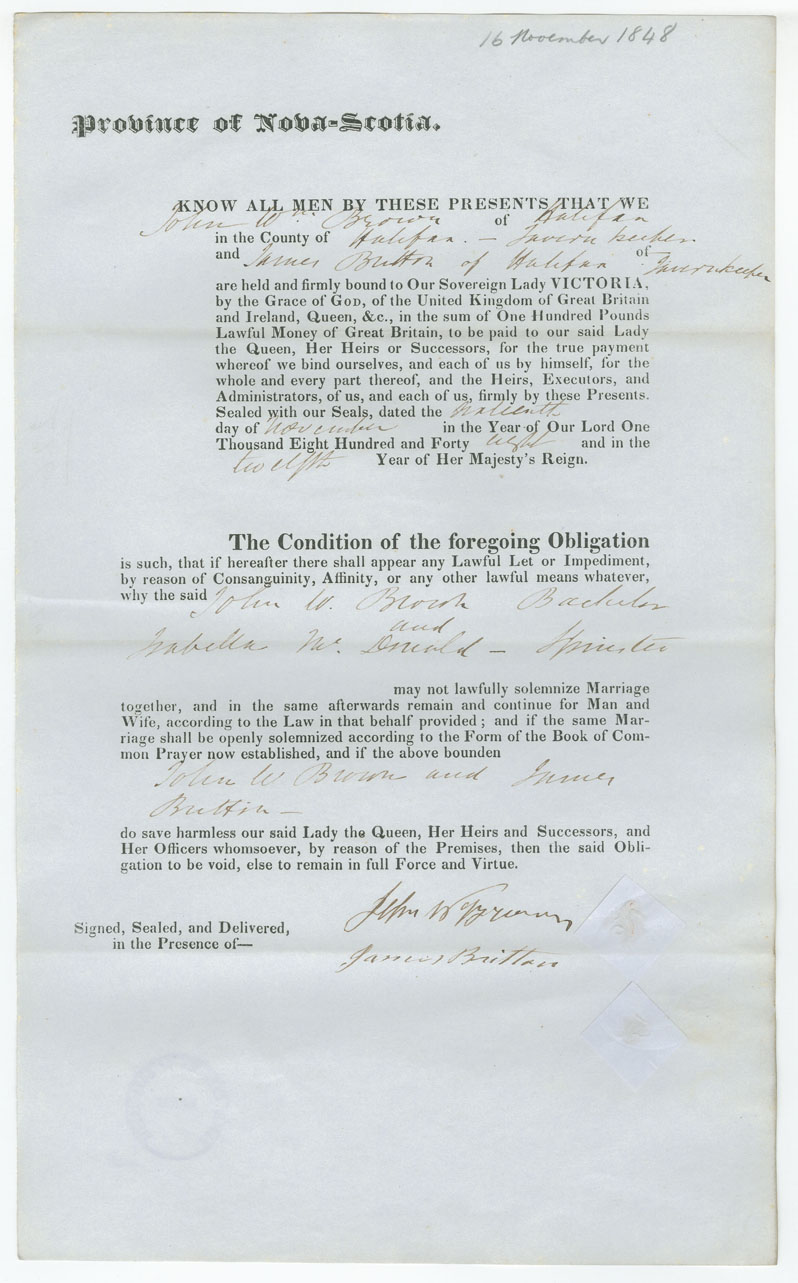 16 November 1848
Province of Nova-Scotia.
KNOW ALL MEN BY THESE PRESENTS THAT WE
John Wm. Brown of Halifax
in the County of Halifax. — Tavern keeper
and James Britton of Halifax of Tavernkeeper
are held and firmly bound to Our Sovereign Lady VICTORIA,
by the Grace of GOD, of the United Kingdom of Great Britain
and Ireland, Queen, &c., in the sum of One Hundred Pounds
Lawful Money of Great Britain, to be paid to our said Lady
the Queen, Her Heirs or Successors, for the true payment
whereof we bind ourselves, and each of us by himself, for the
whole and every part thereof, and the Heirs, Executors, and
Administrators, of us, and each of us, firmly by these Presents.
Sealed with our Seals, dated the sixteenth
day of November in the Year of Our Lord One
Thousand Eight Hundred and Forty eight and in the
twelfth Year of Her Majesty's Reign.
The Condition of the foregoing Obligation
is such, that if hereafter there shall appear any Lawful Let or Impediment,
by reason of Consanguinity, Affinity, or any other lawful means whatever,
why the said John W. Brown Bachelor
and
Isabella Mc. Donald — Spinster
may not lawfully solemnize Marriage
together, and in the same afterwards remain and continue for Man and
Wife, according to the Law in that behalf provided; and if the same Mar-
riage shall be openly solemnized according to the Form of the Book of Com-
mon Prayer now established, and if the above bounden
John W Brown and James
Britton —
do save harmless our said Lady the Queen, Her Heirs and Successors, and
Her Officers whomsoever, by reason of the Premises, then the said Obli-
gation to be void, else to remain in full Force and Virtue.
John Wm Brown
Signed, Sealed, and Delivered,
in the Presence of—
James Britton